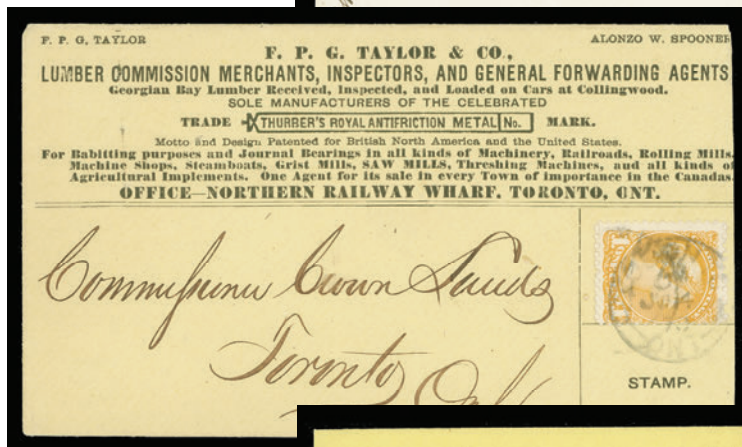 F. P. G. TAYLOR ALONZO W. SPOONER
F. P. G. TAYLOR & CO.,
LUMBER COMMISSION MERCHANTS, INSPECTORS, AND GENERAL FORWARDING AGENTS
Georgian Bay Lumber Received, Inspected, and Loaded on Cars at Collingwood.
SOLE MANUFACTURERS OF THE CELEBRATED
TRADE THURBER'S ROYAL ANTIFRICTION METAL No. MARK.
Motto and Design Patented for British North America and the United States.
For Babitting purposes and Journal Bearings in all kinds of Machinery, Railroads, Rolling Mills,
Machine Shops, Steamboats, Grist Mills, SAW MILLS, Threshing Machines, and all kinds of
Agricultural Implements. One Agent for its sale in every Town of importance in the Canadas.
OFFICE—NORTHERN RAILWAY WHARF, TORONTO, ONT.
Commissioner Crown Lands
Toronto
STAMP.